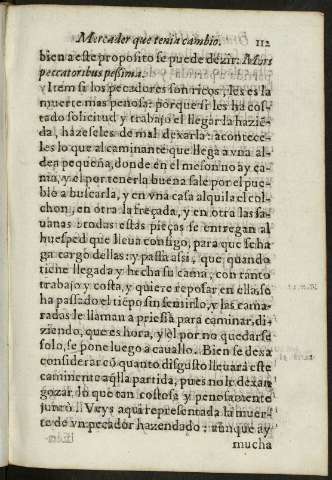 Mercader que tenia cambio. 112
bien a este proposito se puede dezir. Mors
peccatoribus pessima.
y Item si los peccadores son ricos, les es la
muerte mas penosa: porque si les ha cos-
tado solicitud y trabajo el llegar la hazié-
da, hazeseles de mal dexarla: acontece-
les lo que al caminante que llega a vna al-
dea pequeña, donde en el meson no ay ca-
ma, y el por tenerla buena sale por el pue-
blo a buscarla, y en vna casa alquila el col-
chon, en otra la freçada, y en otra las sa-
uanas: todas estas pieças se entregan al
huesped que lleua consigo, para que se ha-
ga cargo dellas: y passa assi, que quando
tiene llegada y hecha su cama, con tanto
trabajo y costa, y quiere reposar en ella, se
ha passado el tiẽpo sin sentirlo, y las cama-
radas le llaman a priessa para caminar, di-
ziendo, que es hora, y el por no quedarse
solo, se pone luego a cauallo. Bien se dexa
considerar cõ quanto disgusto lleuarà este
caminante aq̃lla partida, pues no le dexan
gozar, lo que tan costosa y penosamente
juntò. Veys aqui representada la muer-
te de vn peccador hazendado: aunque ay
mucha